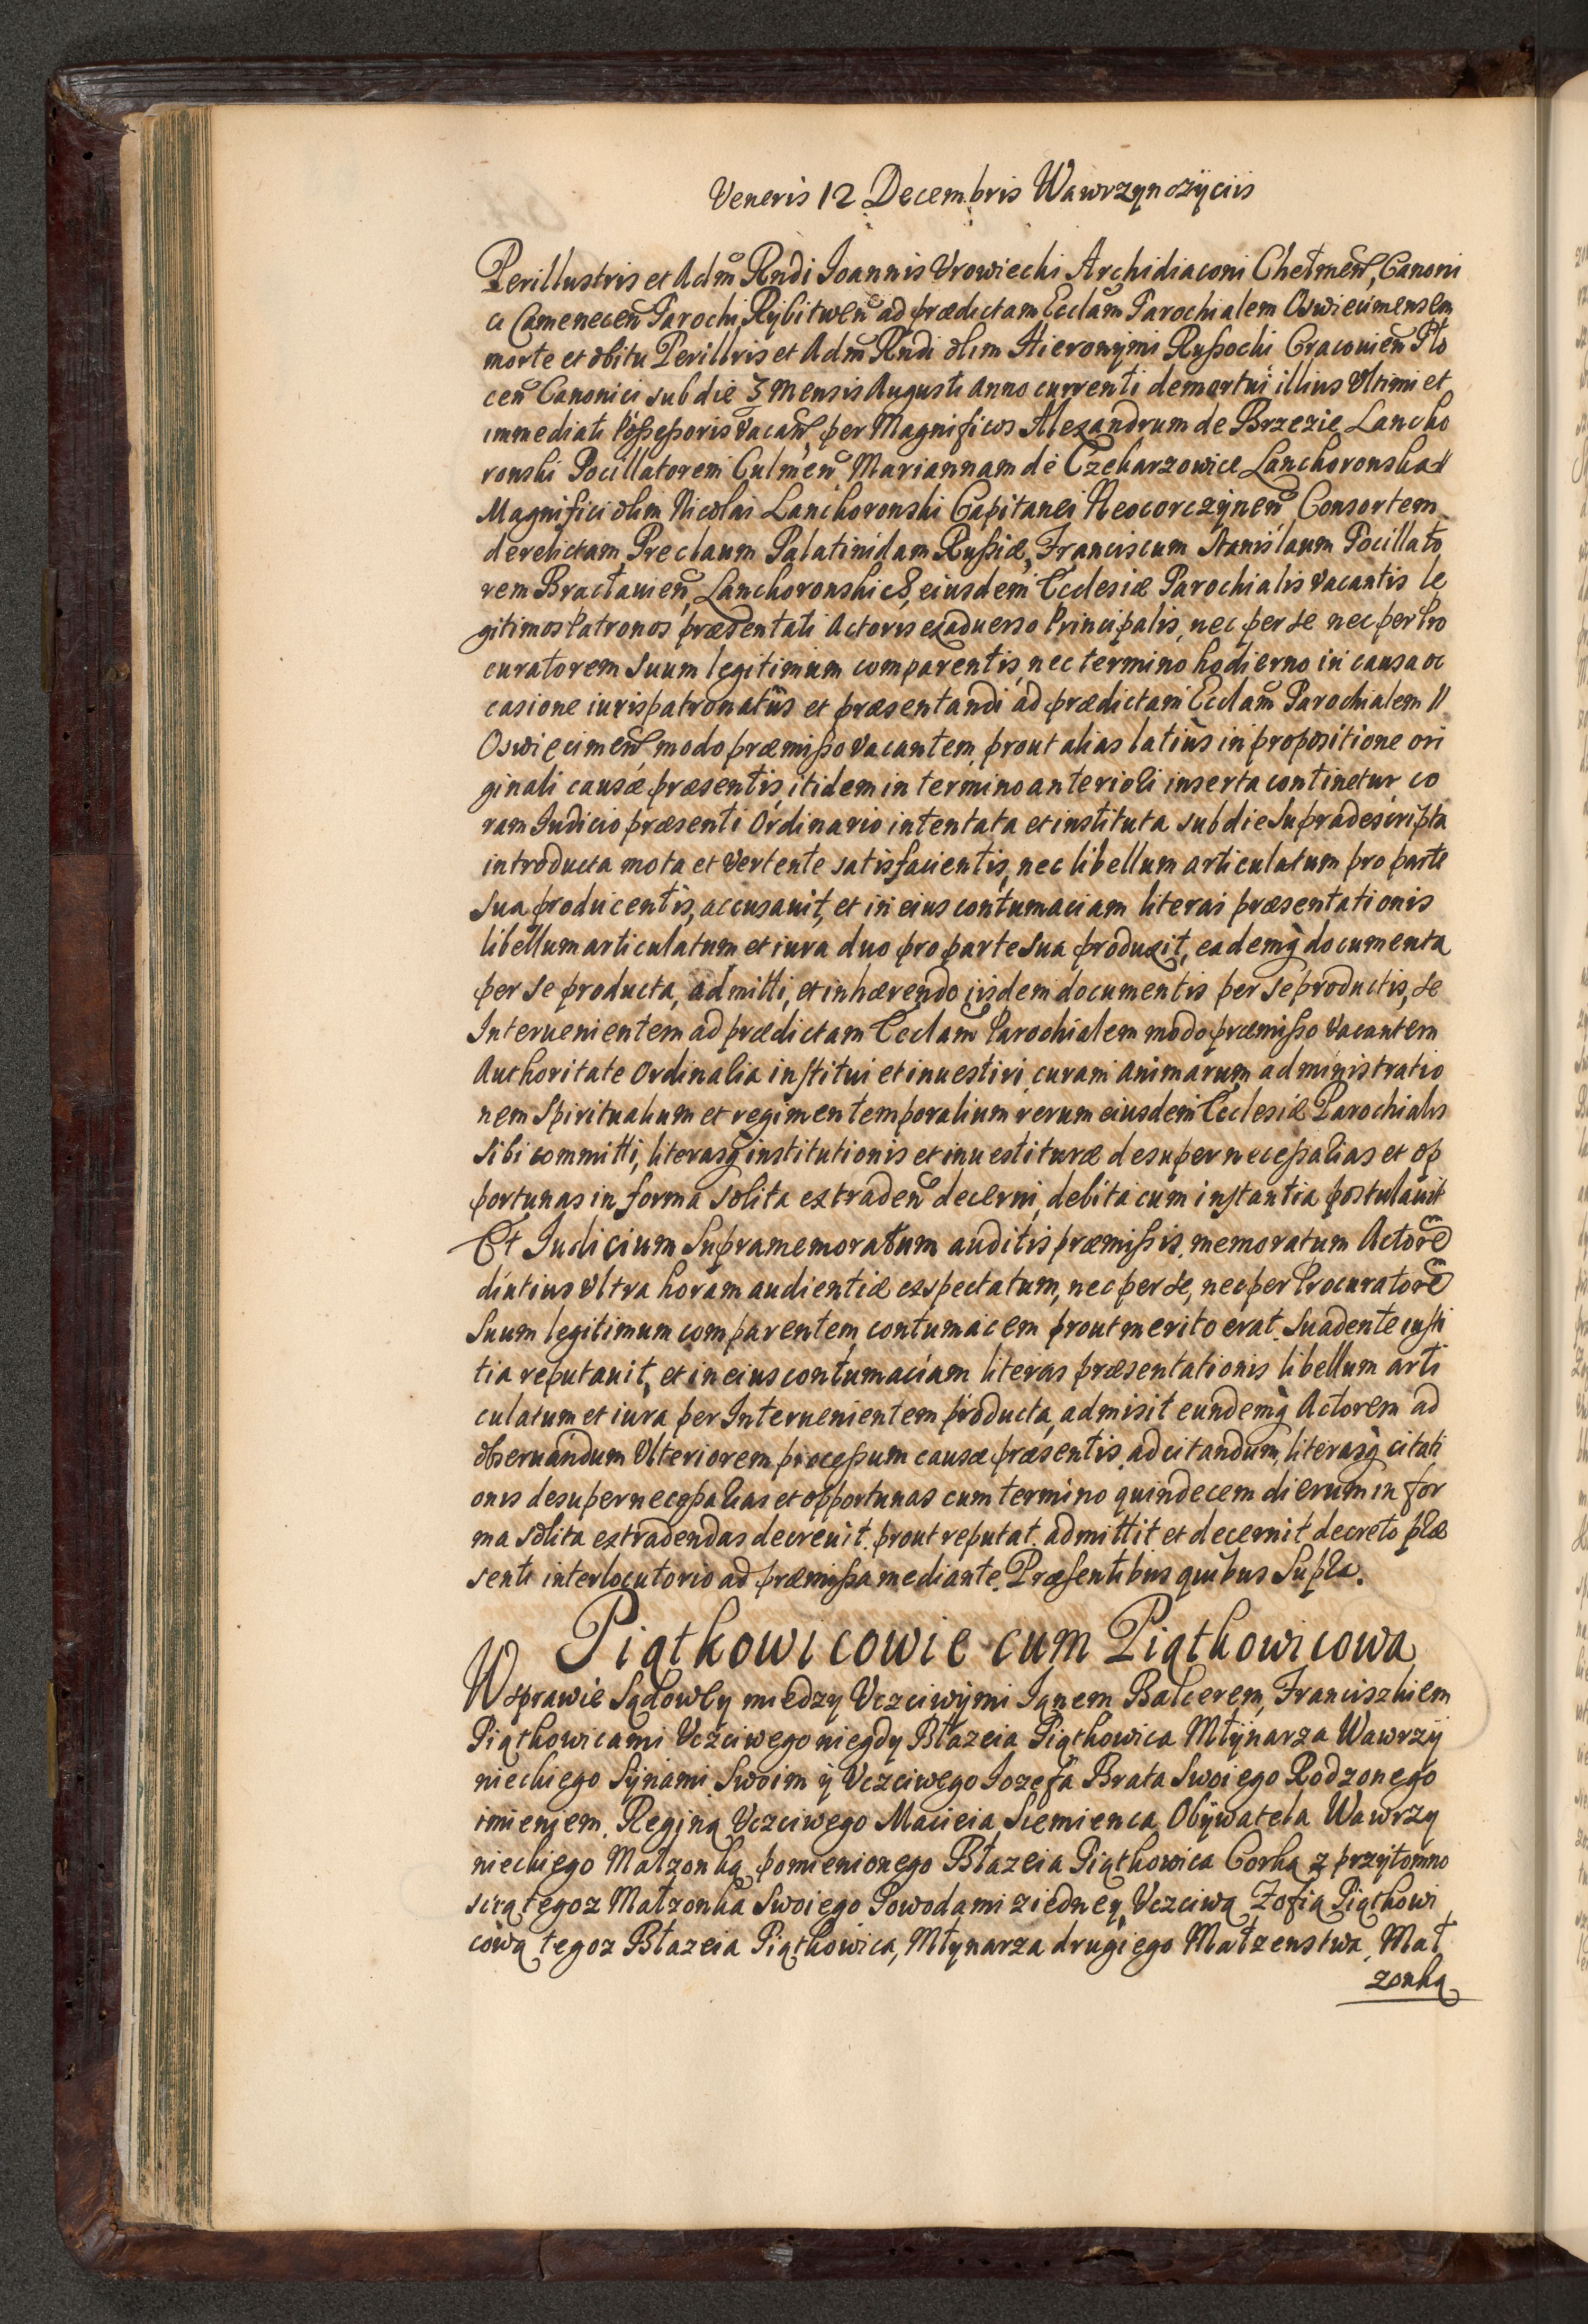 Veneris 12 Decembris Wawrzynczÿciis
Perillustris et Adm̃ Rndi Joannis Vrowiecki Archidiaconi Chełmeñ, Canoni
ci Cameneceñ Parochi Rÿbitweñ ad prædictam Eccłam Parochialem Oswiecimensem
morte et obitu Perillris et Adm̃ Rndi olim Hieronÿmi Russocki Cracouieñ Plo
ceñ Canonici sub die 3 Mensis Augusti Anno currenti demortui illius Vltimi et
immediati Possessoris Vacañ, per Magnificos Alexandrum de Brzezie Lancko
ronski Pocillatorem Culmeñ Mariannam de Czekarzowice Lanckoronska //
Magnifici olim Nicolai Lanckoronski Capitanei Neocorczÿneñ Consortem
derelictam, Preclaum Palatinidam Russiæ, Franciscum Stanislaum Pocillato
rem Bractauieñ, Lanckoronskich, eiusdem Ecclesiæ Parochialis vacantis le
gitimos Patronos præsentati Actoris exaduerso Principalis, nec per se nec per Pro
curatorem Suum legitimum comparentis, nec termino hodierno in causa oc
casione iurispatronatus et præsentandi ad prædictam Eccłam Parochialem //
Oswiecimeñ, modo præmisso vacantem, prout alias latius in propositione ori
ginali causæ præsentis, itidem in termino anteriori inserta continetur co
ram Iudicio præsenti Ordinario intentata et instituta sub die Supradescripta
introducta mota et Vertente satisfacientis, nec libellum articulatum pro parte
sua producentis, accusauit, et in eius contumaciam literas præsentationis
libellum articulatum et iura duo pro parte sua produxit, eademq̀ documenta
per se producta, admitti, et inhærendo iisdem documentis per se productis, se
Interuenientem ad prædictam Eccłam Parochialem modo præmisso Vacantem
Authoritate Ordinaria institui et inuestiri, curam Animarum, administratio
nem Spiritualium et regimen temporalium rerum eiusdem Ecclesiæ Parochialis
sibi committi, literasq̀ institutionis et inuestituræ desuper necessarias et op
portunas in forma solita extradeñ decerni, debita cum instantia postulauit
Et Iudicium Supramemoratum auditis præmissis, memoratum Actorẽ
diutius Vltra horam audientiæ exspectatum, nec per se, nec per Procuratorẽ
Suum legitimum comparentem, contumacem prout merito erat. Suadente iusti
tia reputauit, et in eius contumaciam literas præsentationis libellum arti
culatum et iura per Interuenientem producta, admisit eundemq̀ Actorem ad
obseruandum Vlteriorem processum causæ præsentis, adcitandum, literasq̀ citati
onis desuper necessarias et opportunas cum termino quindecem dierum in for
ma solita extradendas decreuit. prout reputat. admittit et decernit decreto præ
senti interlocutorio ad præmissa mediante. Præsentibus quibus Supra.
Piątkowicowie cum Piątkowicowa
W sprawie Sądowey między Vczciwÿmi Ianem Balcerem, Franciszkiem
Piątkowicami Vczciwego niegdy Błazeia Piątkowica Młÿnarza Wawrzÿ
nieckiego Sÿnami Swoim ÿ Vczciwego Iozefa Brata Swoiego Rodzonego
imieniem. Reginą Vczciwego Macieia Siemienca Obÿwatela Wawrzy
nieckiego Małzonką pomienionego Błazeia Piątkowica Corką z przÿtomno
scią tegoz Małzonka Swoiego Powodami ziedneÿ, Vczciwą Zofią Piątkowi
cową tegoz Błazeia Piątkowica, Młynarza drugiego Małzenstwa, Mał
zonką